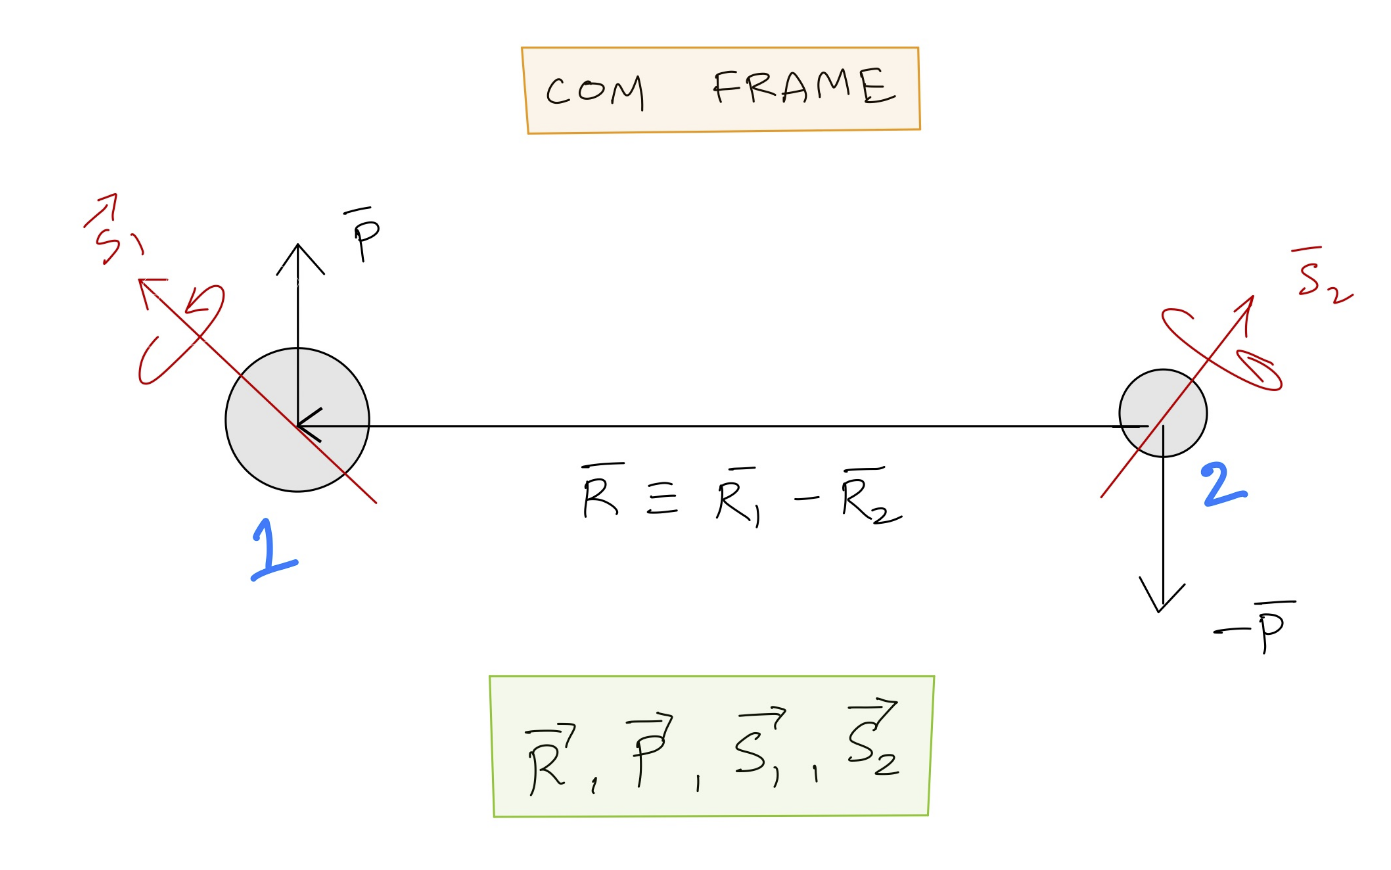 COM FRAME
S⃗₁
P̅
S̅₂
R̅ ≡ R̅₁ - R̅₂
1
2
-P̅
R⃗, P⃗, S⃗₁, S⃗₂